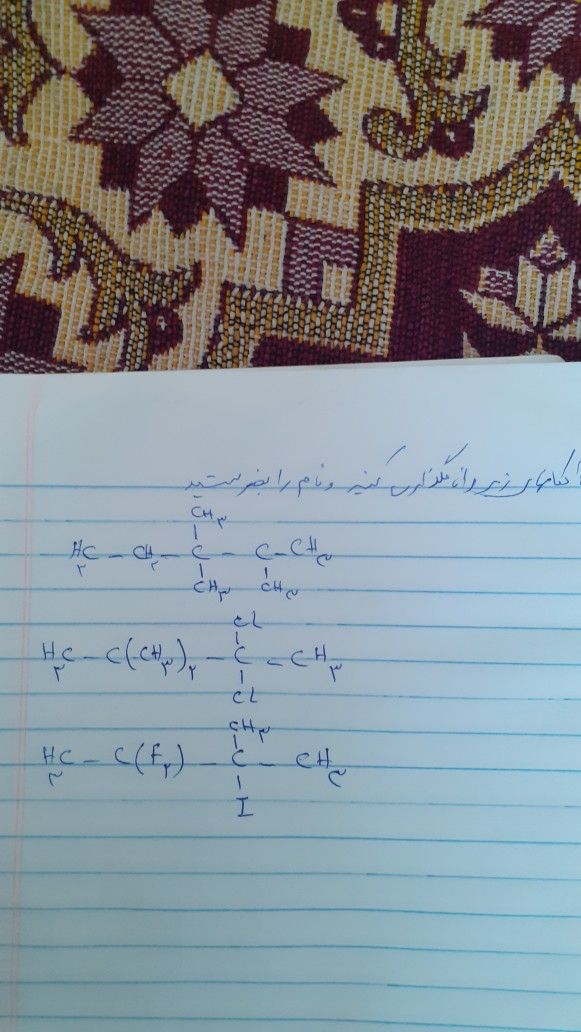 آلکانهای زیر را نامگذاری کنید و نام را بنویسید
CH۳
H۳C – CH۲ – C – C – CH۳
CH۳ CH۳
Cl
H۳C – C(CH۳)۲ – C – CH۳
Cl
CH۳
H۳C – C(F۲) – C – CH۳
I